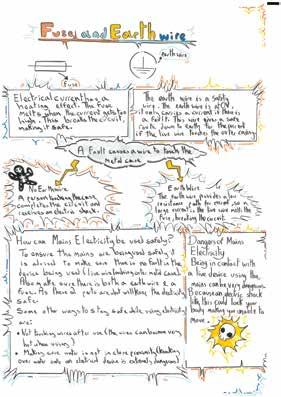 Fuse and Earth wire
Earth wire
Fuse
Electrical current has a
heating effect. The fuse
melts when the current gets too
high. This breaks the circuit,
making it safe.
The earth wire is a safety
wire. The earth wire is at 0V
it only carries a current if there is
a fault. This wire gives a safe
route down to earth for the
if the live wire touches the outer casing
A Fault causes a wire to touch the
metal case
No Earth wire
A person touching the case
completes the circuit and
receives an electric shock.
Earth Wire
The earth wire provides a low
resistance path for current. So a
large current in the live wire melts the
fuse, breaking the current.
How can Mains Electricity be used safely?
To ensure the mains are being used safely it
is advised to make sure there is no fault in the
device being used (live wire touching outer metal case).
Also make sure there is both a earth wire & a
fuse. As these parts are what will keep the electricity
safe.
Some other ways to stay safe while using electricity
are:
• Not touching wires after use (the wires can become very
hot when using)
• Making sure water is not in close proximity
over water onto an electrical device is extremely dangerous)
Dangers of Mains
Electricity
Being in contact with
a live device using the
mains can be very dangerous
Because an electric shock
like this could lock your
body making you unable to
move.